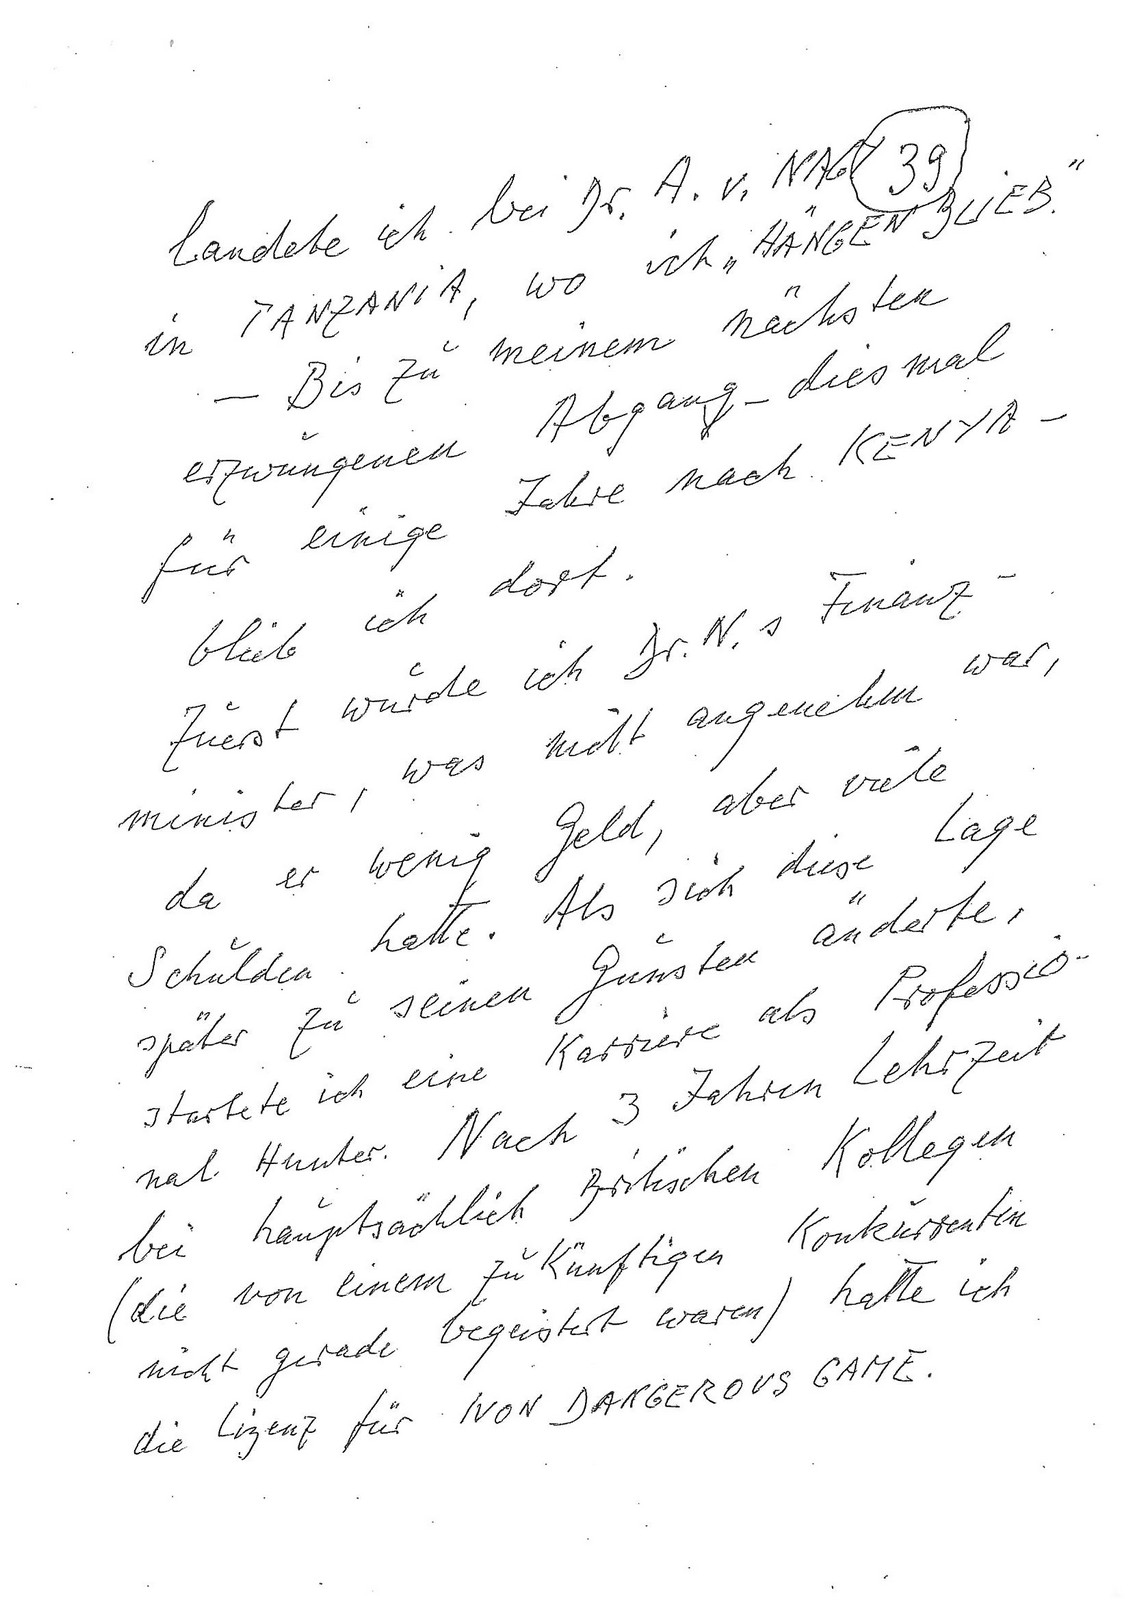 39
landete ich bei Dr. A. v. NAGY
in TANZANIA, wo ich „HÄNGEN BLIEB."
— Bis zu meinem nächsten
erzwungenen Abgang – diesmal
für einige Jahre nach KENYA –
blieb ich dort.
Zuerst wurde ich Dr. N.s Finanz-
minister, was nicht angenehm war,
da er wenig Geld, aber viele
Schulden hatte. Als sich diese Lage
später zu seinen Gunsten änderte,
startete ich eine Karriere als Professio-
nal Hunter. Nach 3 Jahren Lehrzeit
bei hauptsächlich Britischen Kollegen
(die von einem zukünftigen Konkurrenten
nicht gerade begeistert waren) hatte ich
die Lizenz für NON DANGEROUS GAME.